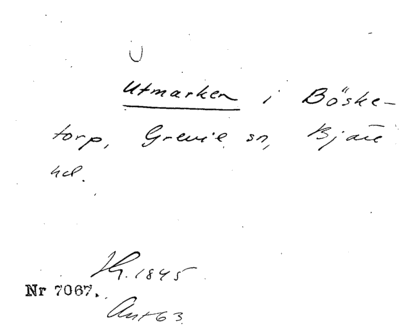 U
Utmarken i Böske-
torp, Grevie sn, Bjäre
hd.
Hr. 1845
Nr 7067.
Ant 63